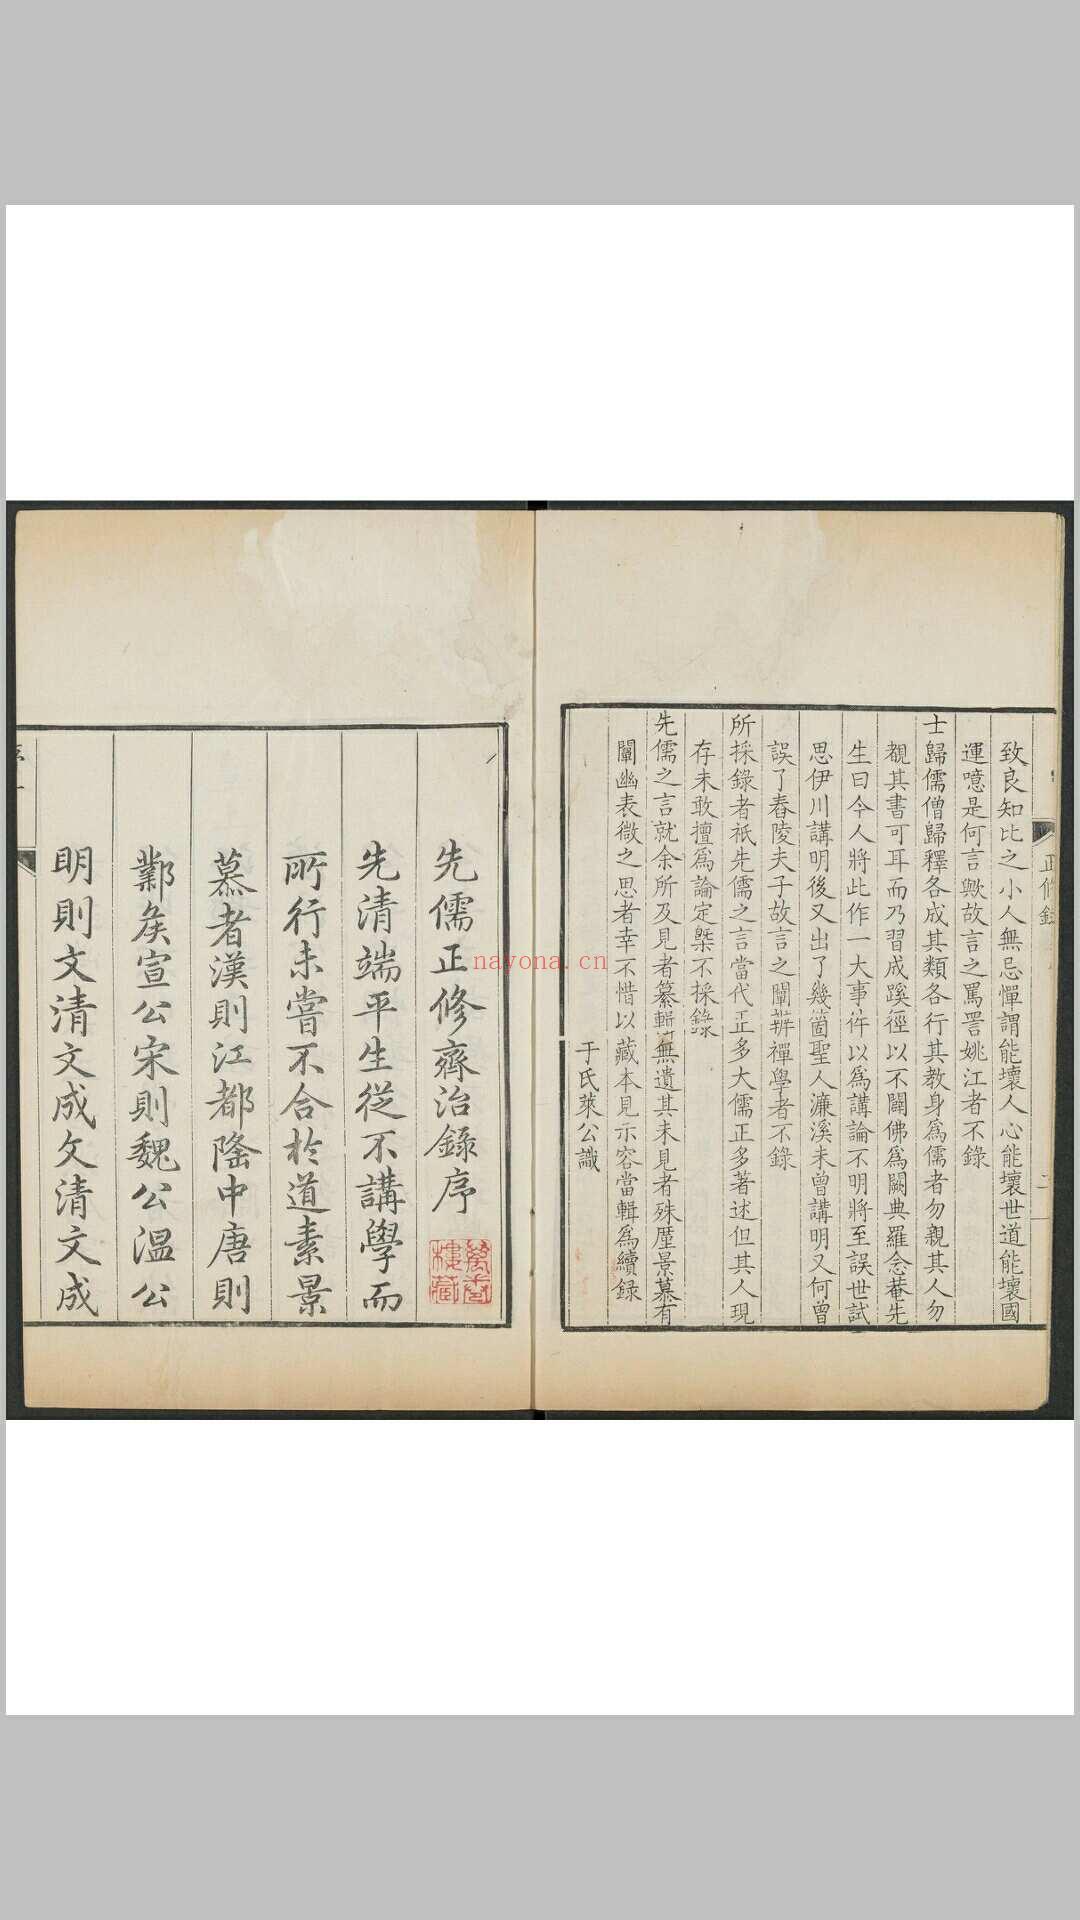 致良知比之小人無忌憚謂能壞人心能壞世道能壞國
運噫是何言歟故言之罵詈姚江者不錄
士歸儒僧歸釋各成其類各行其教身爲儒者勿親其人勿
覩其書可耳而乃習成蹊徑以不闢佛爲闕典羅念菴先
生曰今人將此作一大事件以爲講論不明將至誤世試
思伊川講明後又出了幾箇聖人濂溪未曾講明又何曾
誤了舂陵夫子故言之闢辨禪學者不錄
所採錄者祇先儒之言當代正多大儒正多著述但其人現
存未敢擅爲論定槩不採錄
先儒之言就余所及見者纂輯無遺其未見者殊厪景慕有
闡幽表微之思者幸不惜以藏本見示容當輯爲續錄
于氏萊公識
正修錄
二
先儒正修齊治錄序
萬卷樓藏
先清端平生從不講學而
所行未嘗不合於道素景
慕者漢則江都隆中唐則
鄴矦宣公宋則魏公溫公
明則文清文成文清文成
nayona.cn